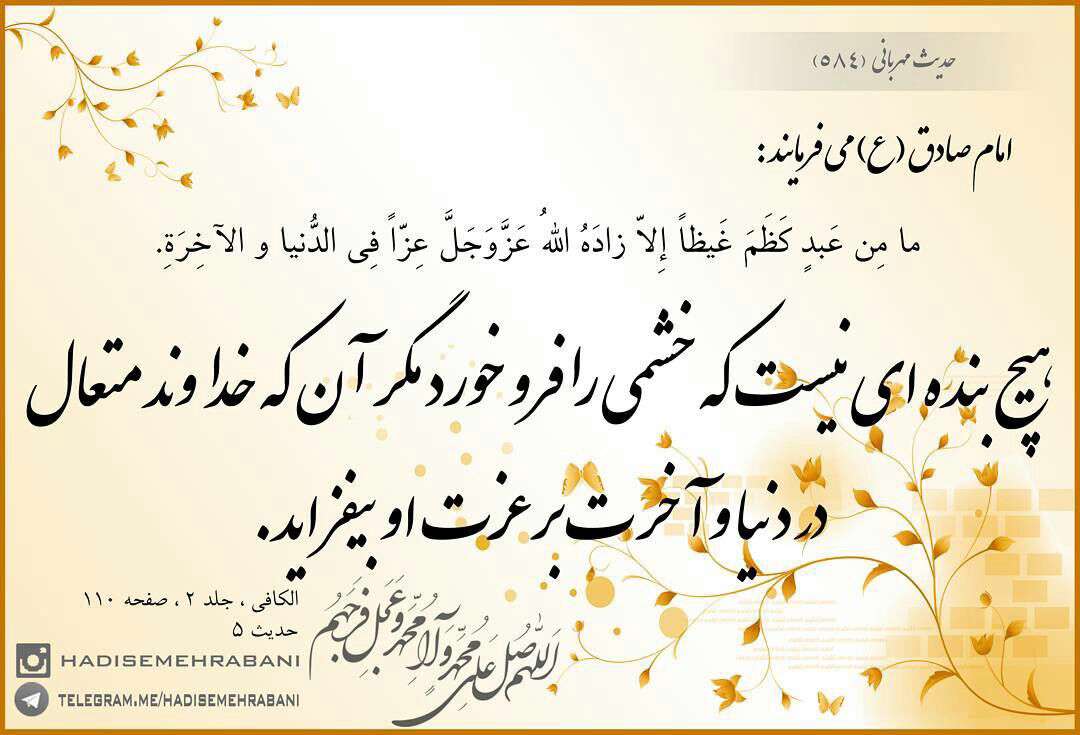 حدیث مهربانی (٥٨٤)
امام صادق (ع) می فرمایند:
ما مِن عَبدٍ كَظَمَ غَيظاً إِلاّ زادَهُ اللهُ عَزَّوَجَلَّ عِزّاً فِى الدُّنيا و الآخِرَةِ.
هیچ بنده ای نیست که خشمی را فرو خورد مگر آن که خداوند متعال
در دنیا و آخرت بر عزت او بیفزاید.
الکافی ، جلد ۲ ، صفحه ۱۱۰
حدیث ۵
اَللّهُمَّ صَلِّ عَلی مُحَمَّدٍ وَ آلِ مُحَمَّدٍ وَ عَجِّل فَرَجَهُم
HADISEMEHRABANI
TELEGRAM.ME/HADISEMEHRABANI